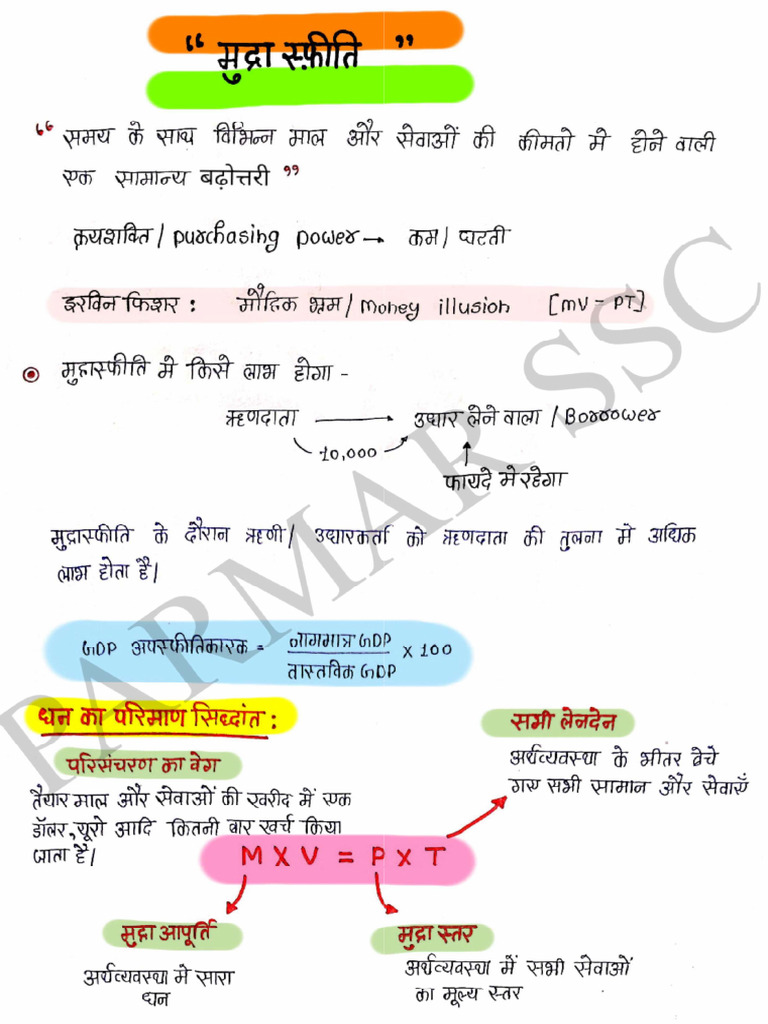 “ मुद्रा स्फ़ीति ”
“ समय के साथ विभिन्न माल और सेवाओं की कीमतो मे होने वाली
एक सामान्य बढ़ोत्तरी ”
क्रयशक्ति / purchasing power → कम / घटती
इरविन फिशर : मौद्रिक भ्रम / Money illusion [MV - PT]
मुद्रास्फीति मे किसे लाभ होगा -
ऋणदाता → उधार लेने वाला / Borrower
10,000
फायदे मे रहेगा
मुद्रास्फीति के दौरान ऋणी / उधारकर्ता को ऋणदाता की तुलना मे अधिक
लाभ होता है।
GDP अपस्फीतिकारक = नाममात्र GDP / वास्तविक GDP × 100
धन का परिमाण सिद्धांत :
सभी लेनदेन
अर्थव्यवस्था के भीतर बेचे
गए सभी सामान और सेवाएँ
परिसंचरण का वेग
तैयार माल और सेवाओं की खरीद में एक
डॉलर, यूरो आदि कितनी बार खर्च किया
जाता है।
M X V = P X T
मुद्रा आपूर्ति
अर्थव्यवस्था मे सारा
धन
मुद्रा स्तर
अर्थव्यवस्था में सभी सेवाओं
का मूल्य स्तर
PARMAR SSC